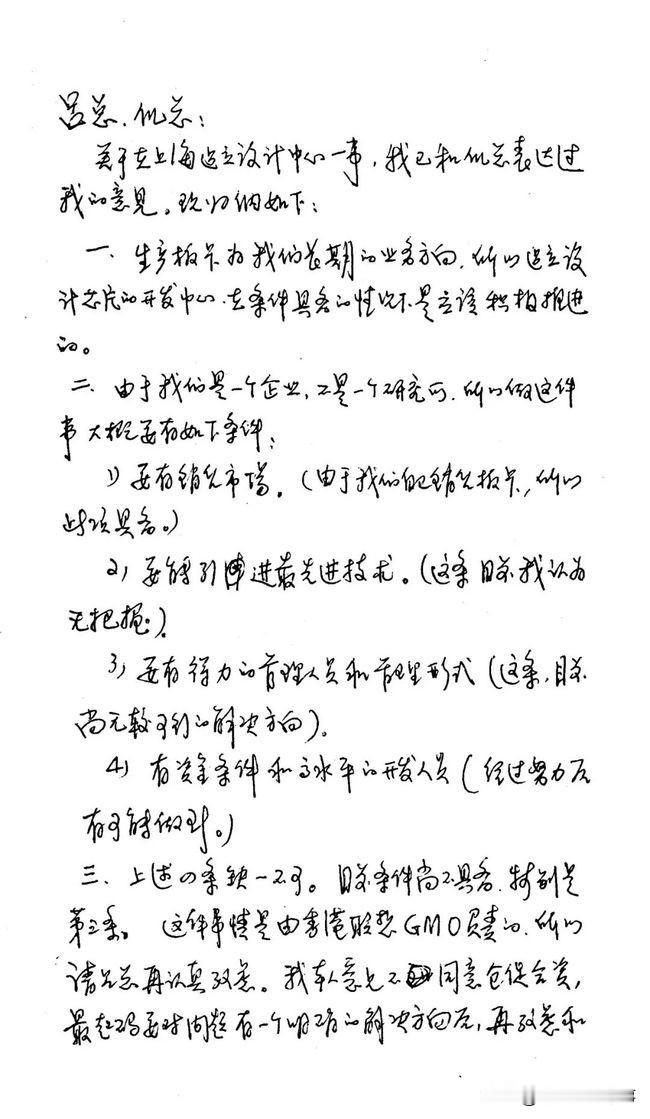 吕总、倪总:
关于在上海建立设计中心一事,我已和倪总表达过
我的意见。现归纳如下:
一、生产板卡为我们长期的业务方向,所以建立设
计芯片的开发中心,在条件具备的情况下是应该积极推进
的。
二、由于我们是一个企业,不是一个研究所,所以做这件
事大概要有如下条件:
1)要有销售市场。(由于我们自己销售板卡,所以
此项具备。)
2)要能引进最先进技术。(这条目前我认为
无把握)。
3)要有得力的管理人员和管理形式(这条,目前
尚无较可行的解决方向)。
4)有资金条件和高水平的开发人员(经过努力后
有可能做到。)
三、上述四条缺一不可。目前条件尚不具备,特别是
第三条。这件事情是由香港联想GMO负责的,所以
请吕总再认真考虑。我本人意见不同意仓促合资,
最起码要对问题有一个明确的解决方向后,再考虑和